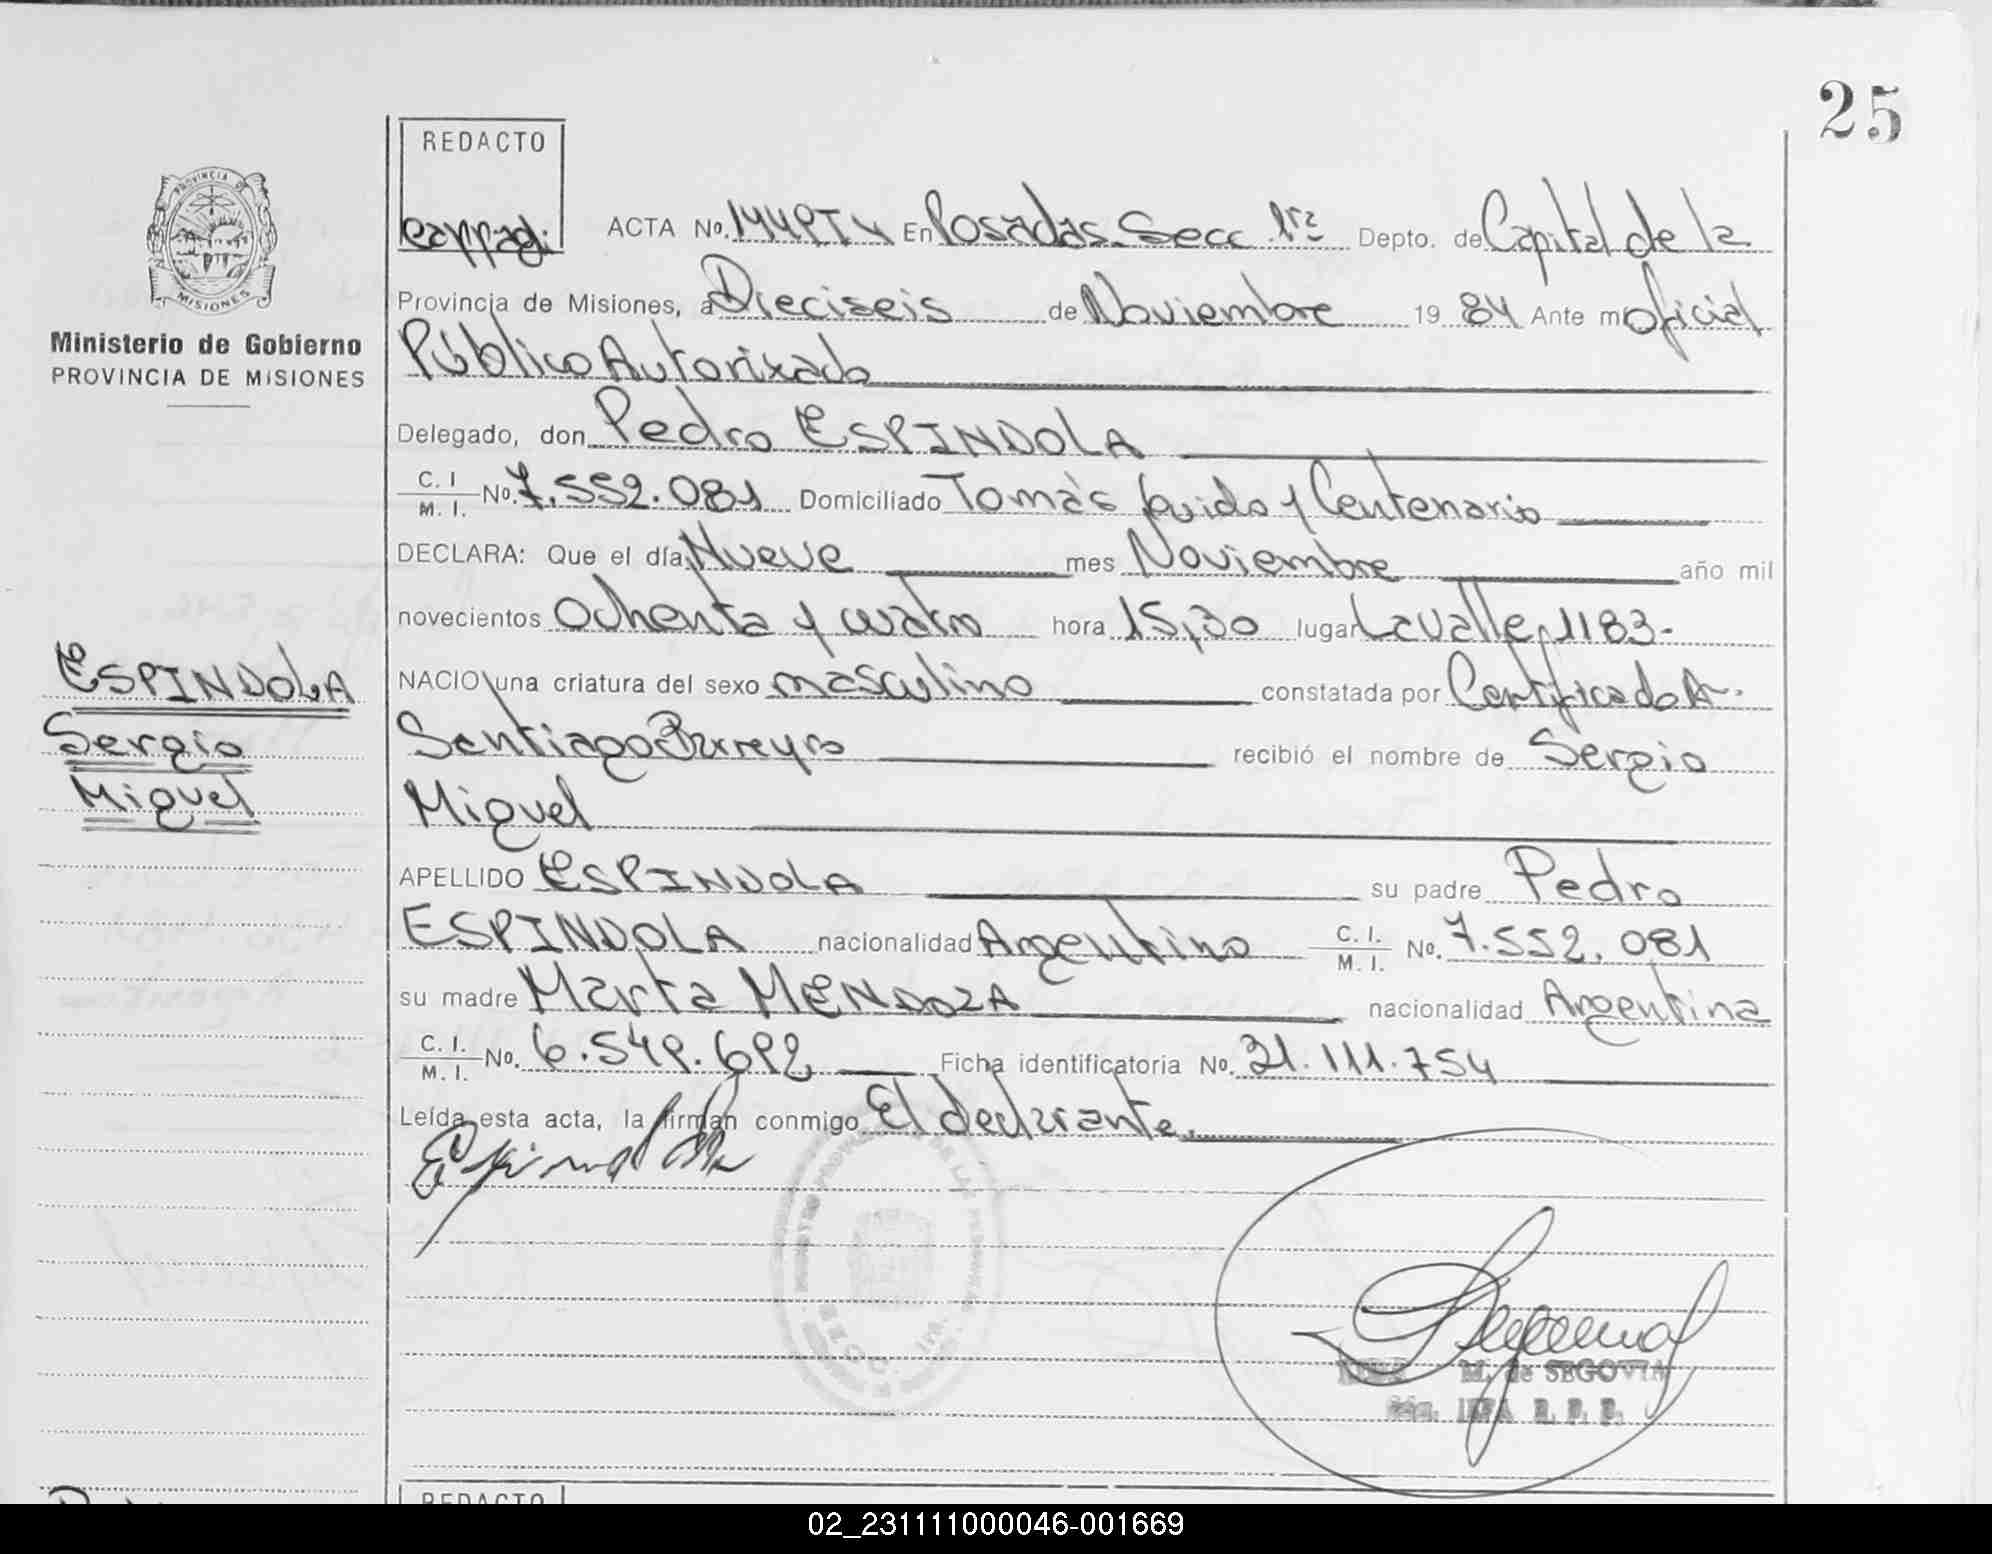 25
REDACTO
cappagi
PROVINCIA DE
MISIONES
Ministerio de Gobierno
PROVINCIA DE MISIONES
ACTA No. En Posadas. Secc 1ra Depto. de Capital de la
Provincia de Misiones, a Dieciseis de Noviembre 19 84 Ante mi Oficial
Público Autorizado
Delegado, don Pedro ESPINDOLA
C. I
M. I. No. 7.552.081 Domiciliado Tomás Guido y Centenario
DECLARA: Que el día Nueve mes Noviembre año mil
novecientos Ochenta y cuatro hora 15,30 lugar Lavalle, 1183-
NACIO una criatura del sexo masculino constatada por Certificado A-
Santiago Barreyro recibió el nombre de Sergio
Miguel
ESPINDOLA
Sergio
Miguel
APELLIDO ESPINDOLA su padre Pedro
ESPINDOLA nacionalidad Argentino C. I.
M. I. No. 7.552.081
su madre Marta MENDOZA nacionalidad Argentina
C. I.
M. I. No. 6.549.692 Ficha identificatoria No. 31.111.754
Leída esta acta, la firman conmigo El declarante.
Espindola
M. de SEGOVIA
REDACTO
02_231111000046-001669